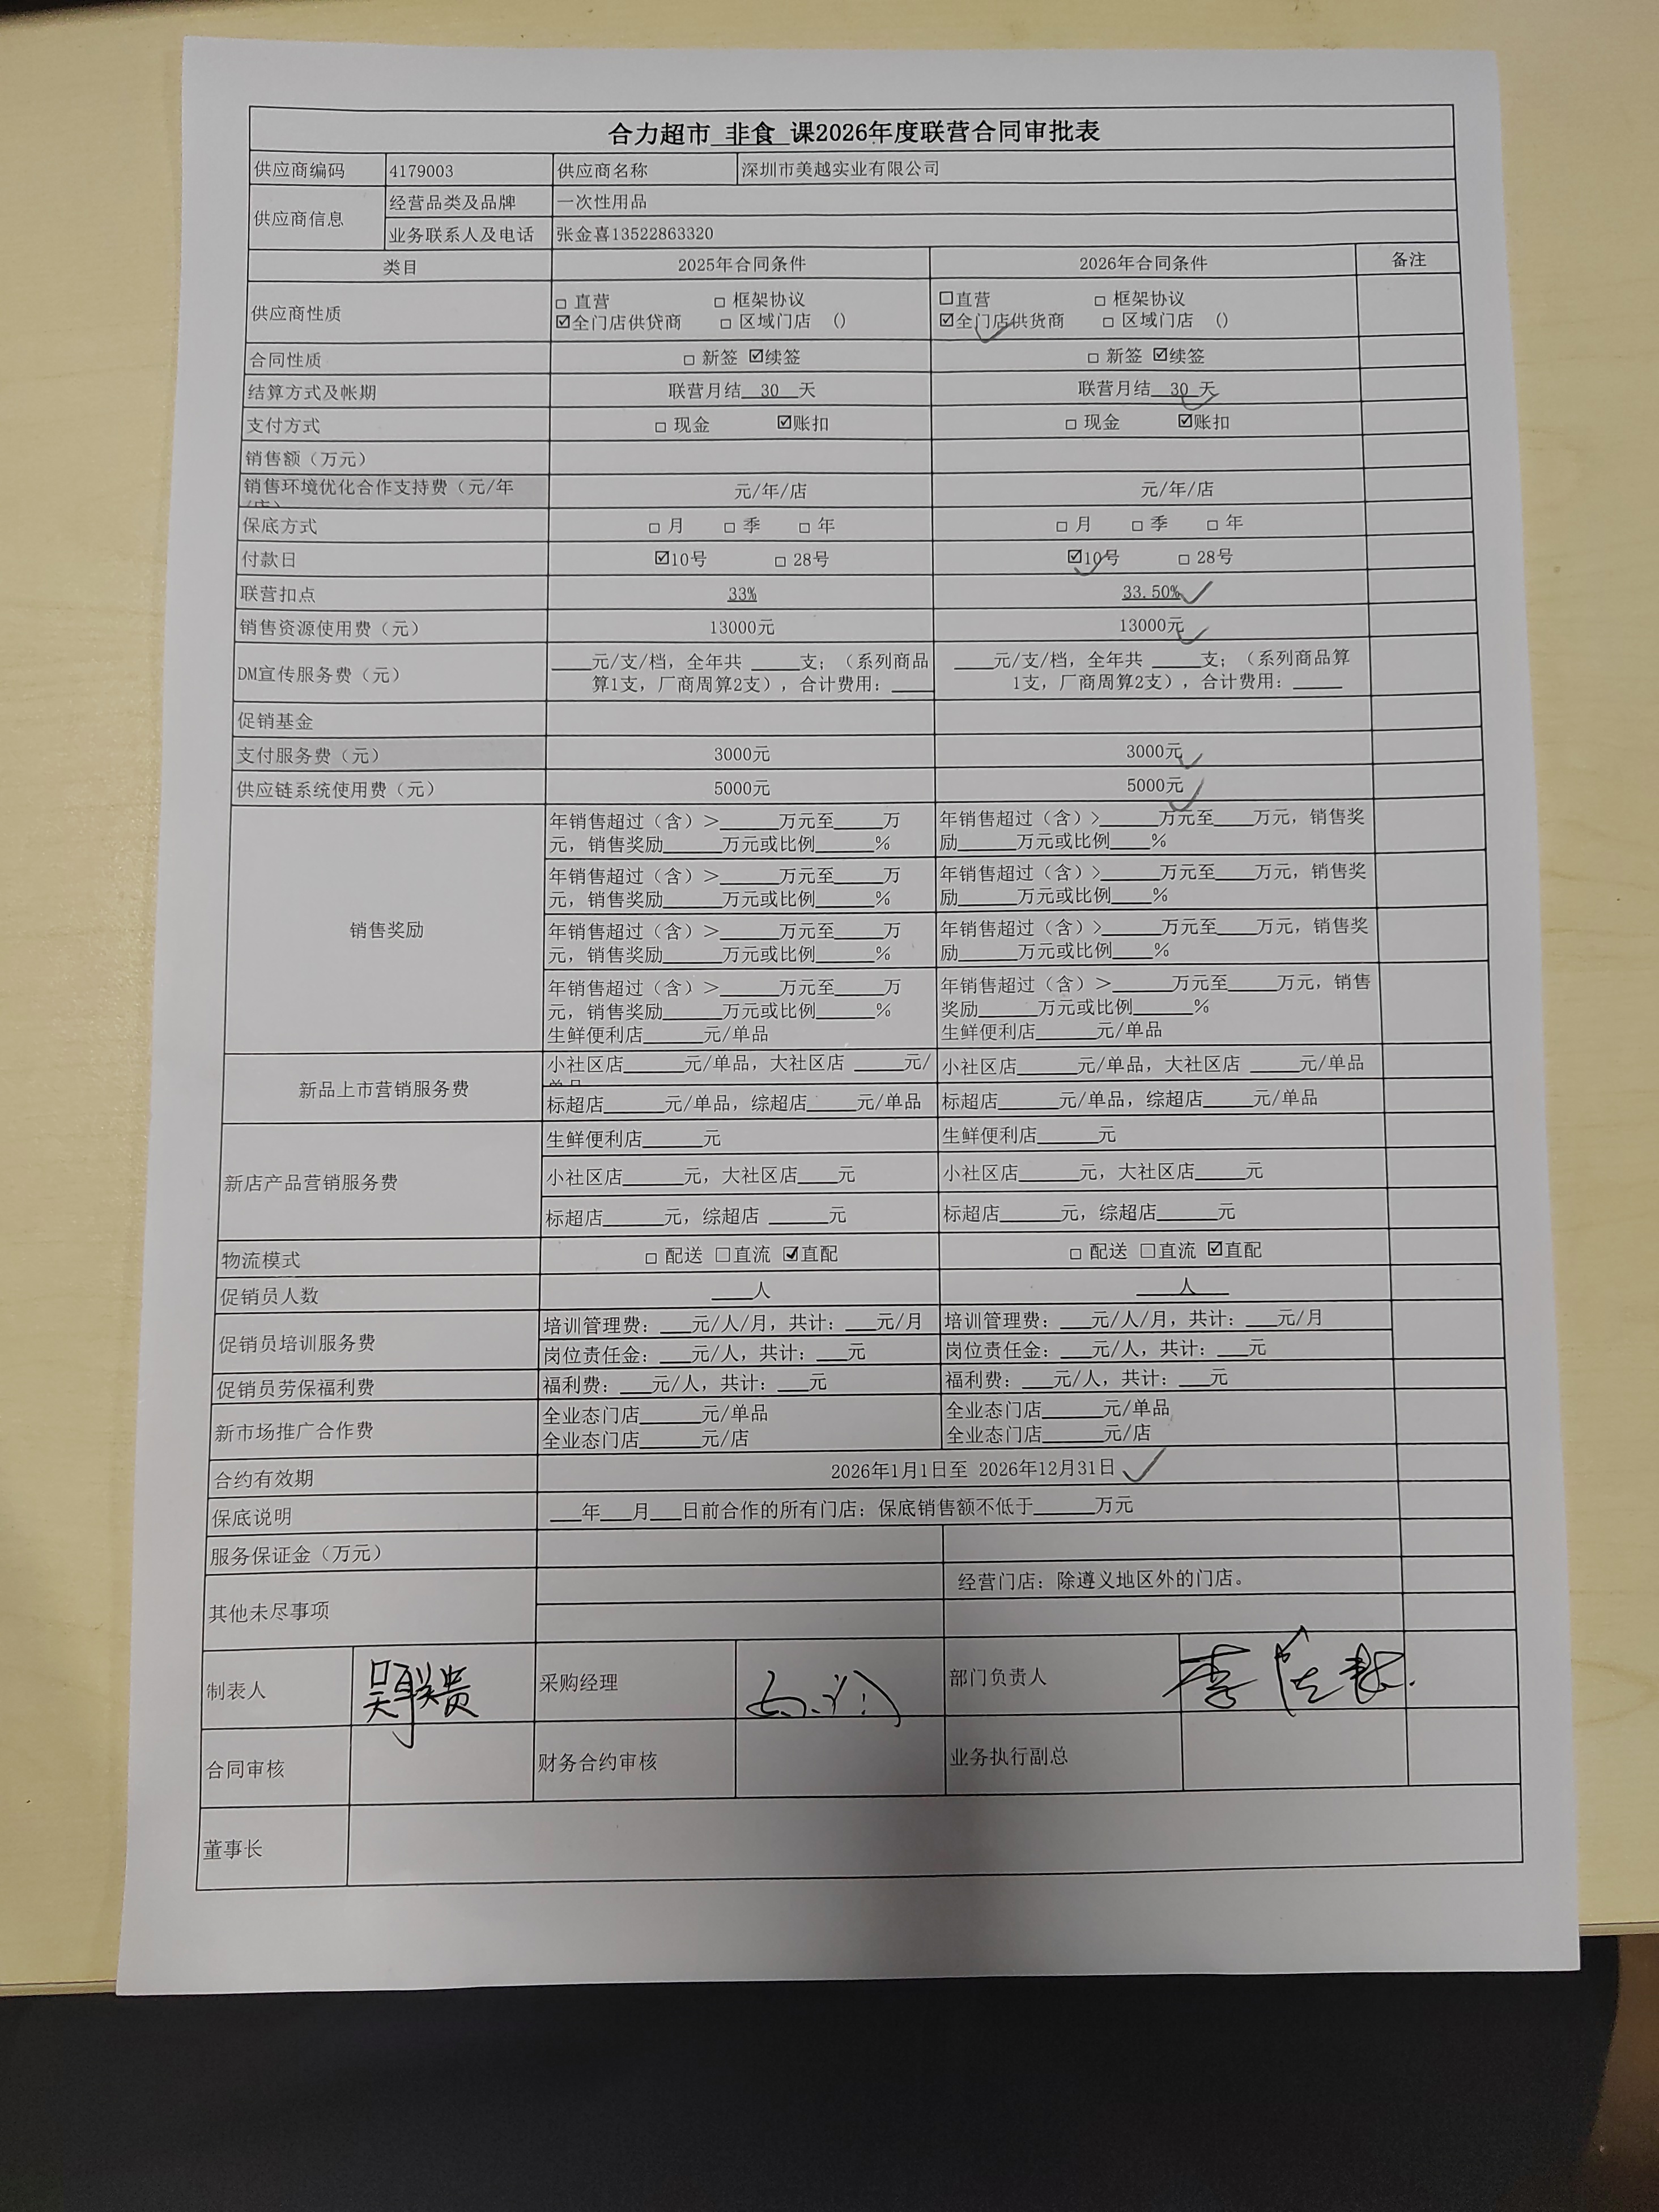 合力超市 非食 课2026年度联营合同审批表
供应商编码 4179003 供应商名称 深圳市美越实业有限公司
供应商信息 经营品类及品牌 一次性用品
业务联系人及电话 张金喜13522863320
类目 2025年合同条件 2026年合同条件 备注
供应商性质
□ 直营 □ 框架协议 □直营 □ 框架协议
☑全门店供贷商 □ 区域门店 () ☑全门店供货商 □ 区域门店 ()
合同性质 □ 新签 ☑续签 □ 新签 ☑续签
结算方式及帐期 联营月结__30__天 联营月结__30_天
支付方式 □ 现金 ☑账扣 □ 现金 ☑账扣
销售额（万元）
销售环境优化合作支持费（元/年 元/年/店 元/年/店
保底方式 □ 月 □ 季 □ 年 □ 月 □ 季 □ 年
付款日 ☑10号 □ 28号 ☑10号 □ 28号
联营扣点 33% 33.50%
销售资源使用费（元） 13000元 13000元
DM宣传服务费（元）
____元/支/档，全年共 _____支；（系列商品 ____元/支/档，全年共 _____支；（系列商品算
算1支，厂商周算2支），合计费用：____ 1支，厂商周算2支），合计费用：_____
促销基金
支付服务费（元） 3000元 3000元
供应链系统使用费（元） 5000元 5000元
销售奖励
年销售超过（含）＞______万元至_____万 年销售超过（含）>______万元至____万元，销售奖
元，销售奖励______万元或比例______% 励______万元或比例____%
年销售超过（含）＞______万元至_____万 年销售超过（含）>______万元至____万元，销售奖
元，销售奖励______万元或比例______% 励______万元或比例____%
年销售超过（含）＞______万元至_____万 年销售超过（含）>______万元至____万元，销售奖
元，销售奖励______万元或比例______% 励______万元或比例____%
年销售超过（含）＞______万元至_____万 年销售超过（含）＞______万元至_____万元，销售
元，销售奖励______万元或比例______% 奖励______万元或比例______%
生鲜便利店______元/单品 生鲜便利店______元/单品
新品上市营销服务费
小社区店______元/单品，大社区店 _____元/ 小社区店______元/单品，大社区店 _____元/单品
标超店______元/单品，综超店_____元/单品 标超店______元/单品，综超店_____元/单品
新店产品营销服务费
生鲜便利店______元 生鲜便利店______元
小社区店______元，大社区店____元 小社区店______元，大社区店____元
标超店______元，综超店 ______元 标超店______元，综超店______元
物流模式 □ 配送 □直流 ☑直配 □ 配送 □直流 ☑直配
促销员人数 ____人 ____人___
促销员培训服务费
培训管理费：___元/人/月，共计：___元/月 培训管理费：___元/人/月，共计：___元/月
岗位责任金：___元/人，共计：___元 岗位责任金：___元/人，共计：___元
促销员劳保福利费 福利费：___元/人，共计：___元 福利费：___元/人，共计：___元
新市场推广合作费
全业态门店______元/单品 全业态门店______元/单品
全业态门店______元/店 全业态门店______元/店
合约有效期 2026年1月1日至 2026年12月31日
保底说明 ___年___月___日前合作的所有门店：保底销售额不低于______万元
服务保证金（万元）
其他未尽事项 经营门店：除遵义地区外的门店。
制表人 采购经理 部门负责人
合同审核 财务合约审核 业务执行副总
董事长